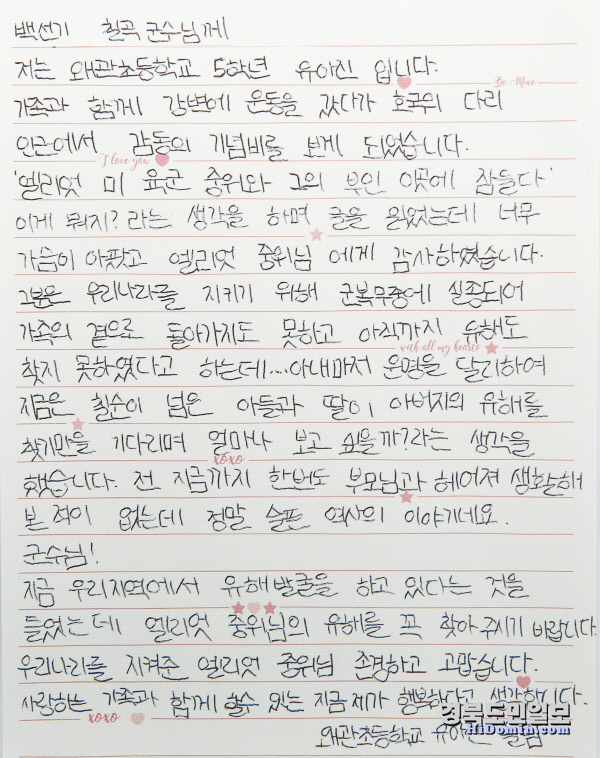 백선기 칠곡 군수님께
저는 왜관초등학교 5학년 유아진 입니다.
Be Mine
가족과 함께 강변에 운동을 갔다가 호국의 다리
인근에서 감동의 기념비를 보게 되었습니다.
I love you
'엘리엇 미 육군 중위와 그의 부인 이곳에 잠들다'
이게 뭐지? 라는 생각을 하며 글을 읽었는데 너무
가슴이 아팠고 엘리엇 중위님 에게 감사하였습니다.
그분은 우리나라를 지키기 위해 군복무중에 실종되어
가족의 곁으로 돌아가지도 못하고 아직까지 유해도
with all my hearts
찾지 못하였다고 하는데...아내마저 운명을 달리하여
지금은 칠순이 넘은 아들과 딸이 아버지의 유해를
찾기만을 기다리며 얼마나 보고 싶을까?라는 생각을
xoxo
했습니다. 전 지금까지 한번도 부모님과 헤어져 생활해
본 적이 없는데 정말 슬픈 역사의 이야기네요.
군수님!
지금 우리지역에서 유해발굴을 하고 있다는 것을
들었는데 엘리엇 중위님의 유해를 꼭 찾아 주시기 바랍니다.
우리나라를 지켜준 엘리엇 중위님 존경하고 고맙습니다.
사랑하는 가족과 함께 할수 있는 지금 제가 행복하다고 생각합니다.
xoxo
경북도민일보
HiDomin.com
왜관초등학교 유아진 올림